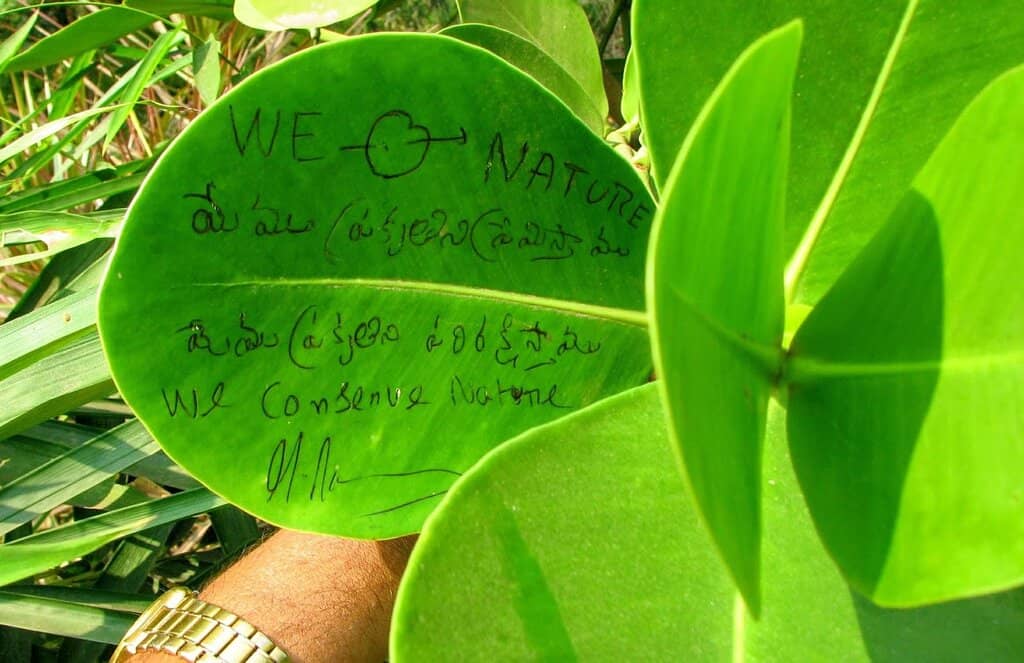 WE NATURE
మేము ప్రకృతిని ప్రేమిస్తాము
మేము ప్రకృతిని పరిరక్షిస్తాము
We Conserve Nature